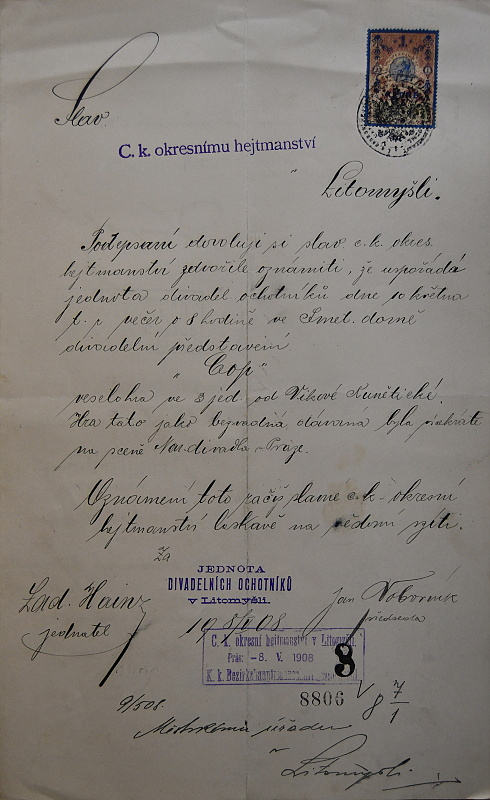 1
Slav.
C. k. okresnímu hejtmanství
v Litomyšli.
Podepsaní dovolují si slav. c. k. okres.
hejtmanství zdvořile oznámiti, že uspořádá
jednota divadel. ochotníků dne 10 května
t. r. večer o 8 hodině ve Smet. domě
divadelní představení
"Cop"
veselohra ve 3 jed. od Vikové Kunětické.
Hra tato jako bezvadná dávaná byla
na scéně Nar. divadla v Praze.
Oznámení toto račiž slavné c. k. okresní
hejtmanství laskavě na vědomí vzíti.
Za
JEDNOTA
DIVADELNÍCH OCHOTNÍKŮ
v Litomyšli.
Lad. Hainz
jednatel
Jan Voborník
předseda
19 8/V 08
C. k. okresní hejtmanství v Litomyšli.
Präs: -8. V. 1908
K. k. Bezirkshauptmannschaft
8
8806
8 7/1
9/508.
Městskému úřadu
v
Litomyšli.